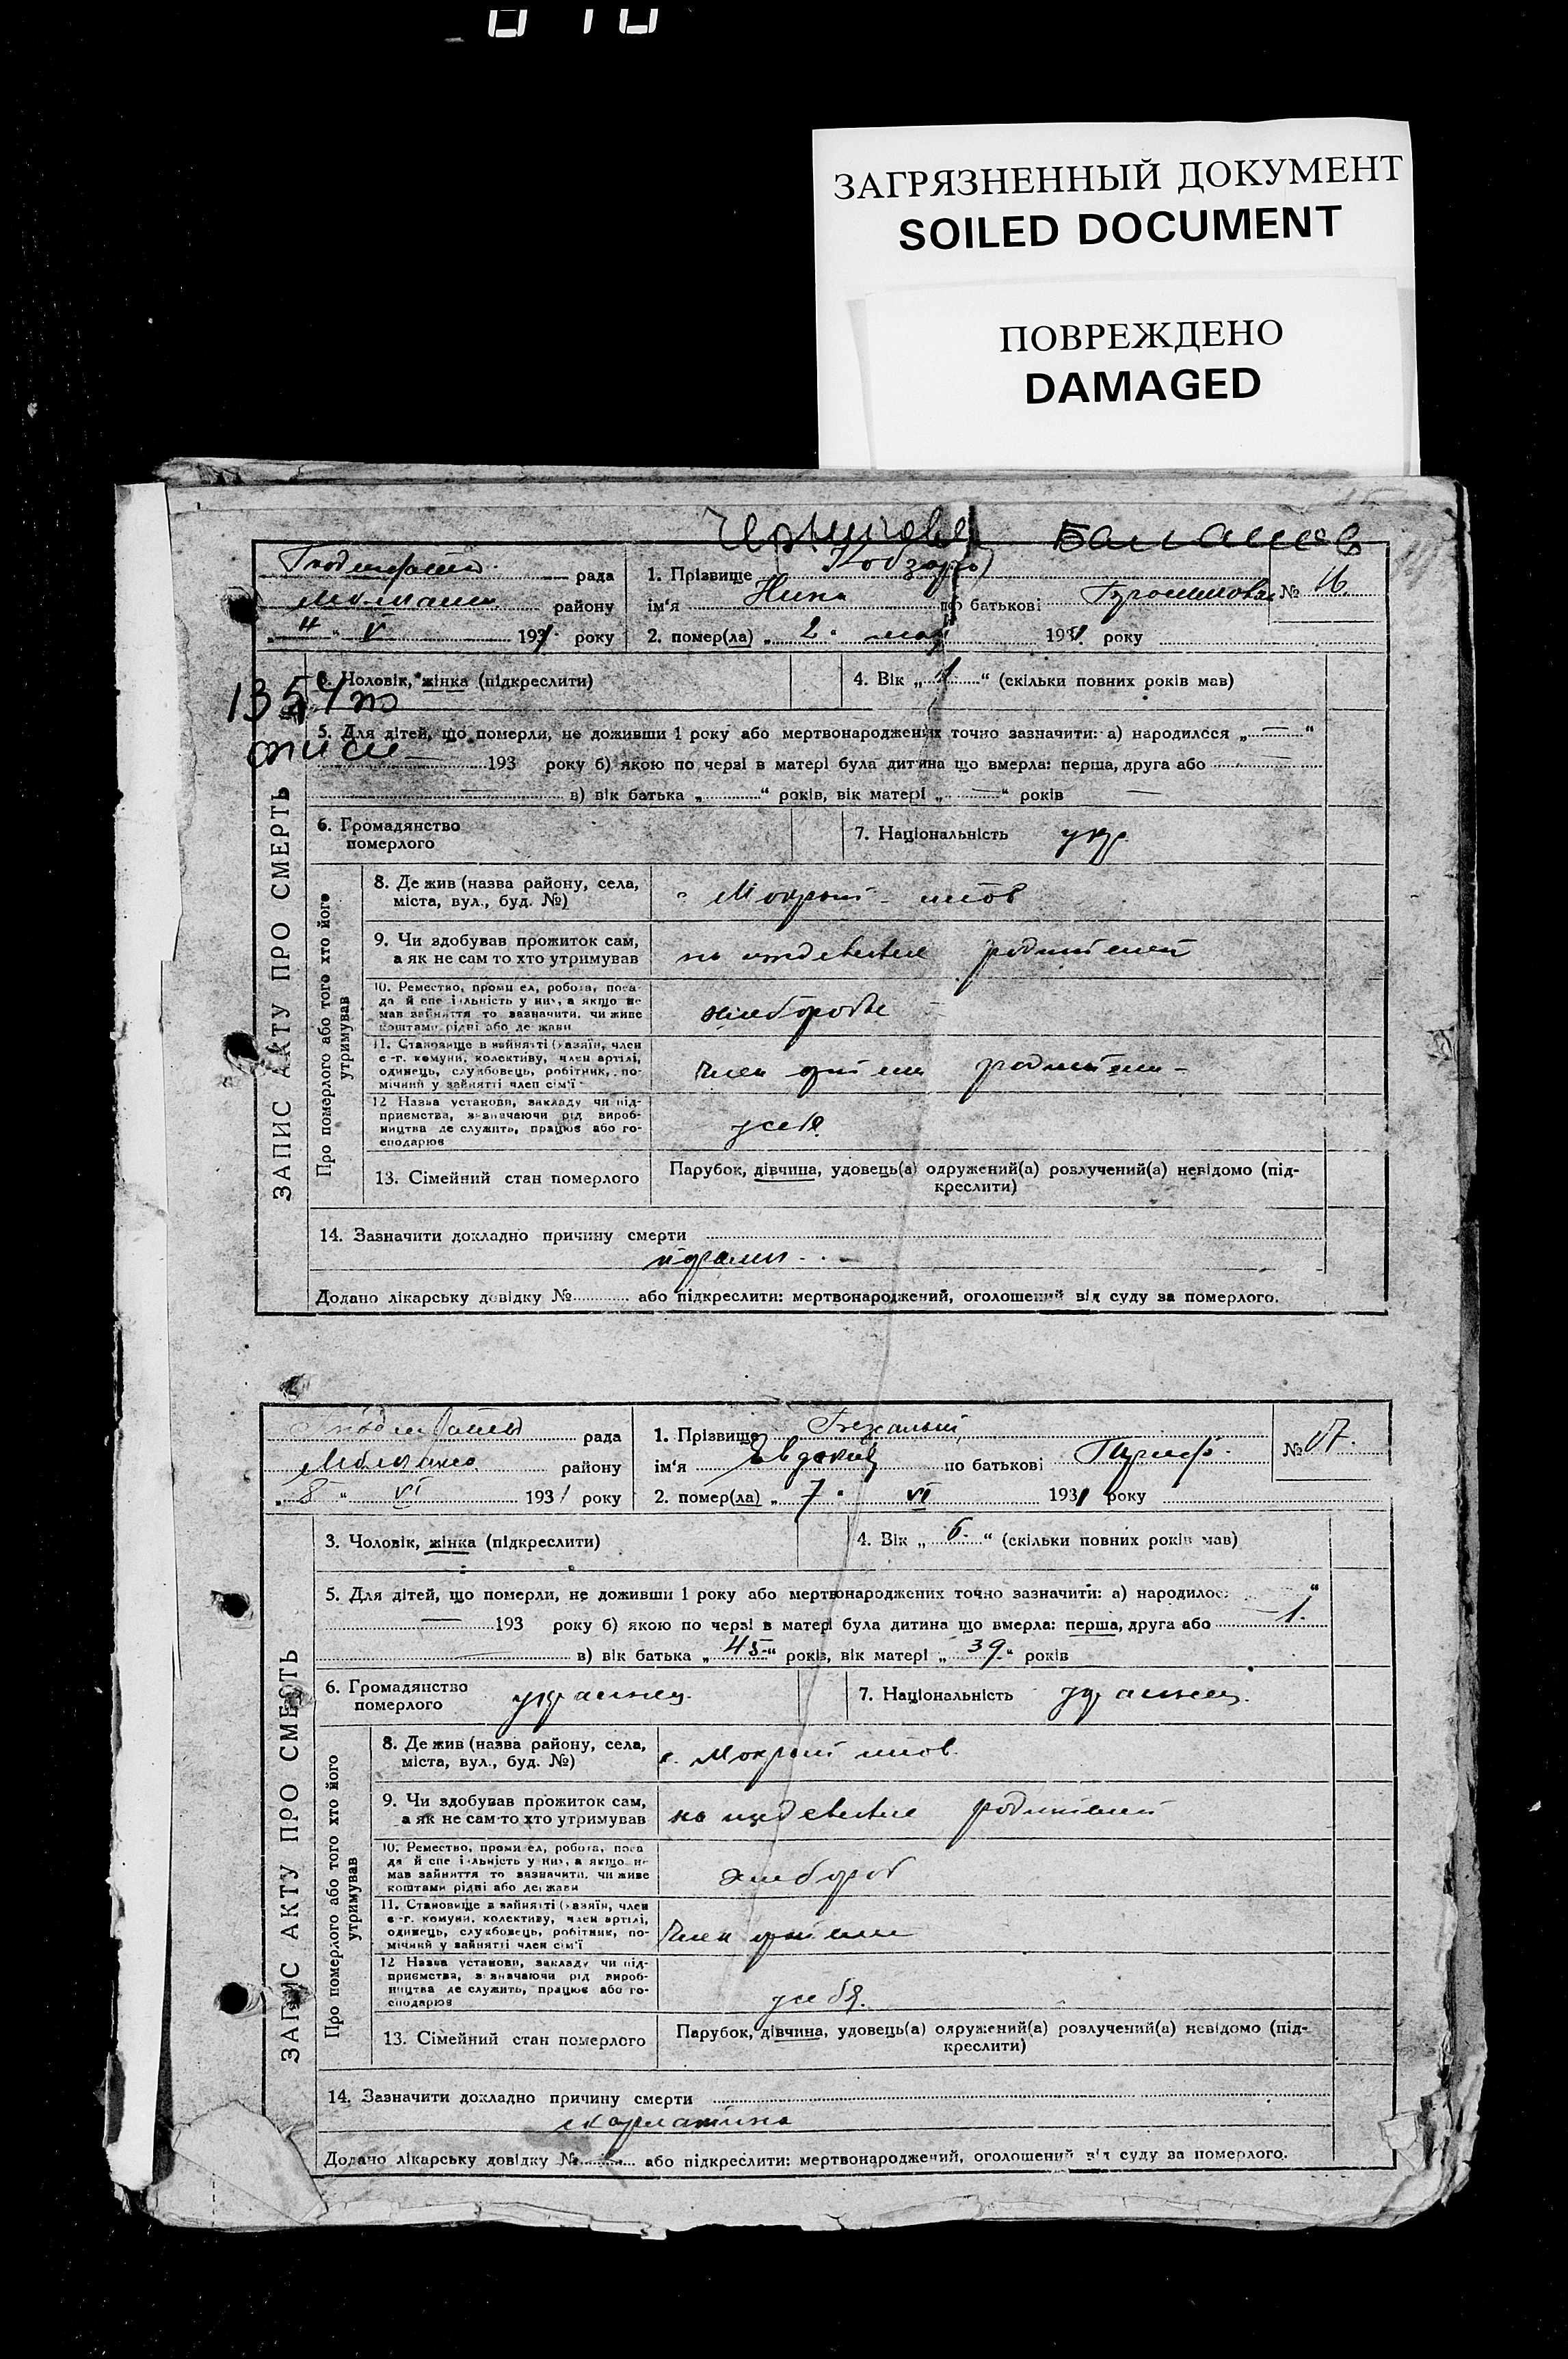 ЗАГРЯЗНЕННЫЙ ДОКУМЕНТ
SOILED DOCUMENT
ПОВРЕЖДЕНО
DAMAGED
рада
1. Прізвище Кобзарь
району
ім‘я Нина по батькові
№ 16.
„ 4 “ V 1931 року
2. помер(ла) „ 2 “ мая 1931 року
ЗАПИС АКТУ ПРО СМЕРТЬ
3. Чоловік, жінка (підкреслити)
4. Вік „ 1 “ (скільки повних років мав)
5. Для дітей, що померли, не доживши 1 року або мертвонароджених точно зазначити: а) народилося „ — “
193 року б) якою по черзі в матері була дитина що вмерла: перша, друга або
в) вік батька „ “ років, вік матері „ — “ років
6. Громадянство
померлого
7. Національність укр.
Про померлого або того хто його
утримував
8. Де жив (назва району, села,
міста, вул., буд. №)
с Мокрый
9. Чи здобував прожиток сам,
а як не сам то хто утримував
на иждевение родителей
10. Ремество, проми ел, робота, поса-
да й спе і льність у них, а якщо не
мав зайняття то зазначити, чи живе
коштами рідні або держави
11. Становище в зайнятті (хазяїн, член
с.-г. комуни, колективу, член артілі,
одинець, службовець, робітник, по-
мічний у зайнятті член сім'ї
член артели родители
12 Назва установи, закладу чи під-
приємства, зазначаючи рід вироб-
ництва де служить, працює або го-
сподарює
у себя
13. Сімейний стан померлого
Парубок, дівчина, удовець(а) одружений(а) розлучений(а) невідомо (під-
креслити)
14. Зазначити докладно причину смерти
Додано лікарську довідку № або підкреслити: мертвонароджений, оголошений від суду за померлого.
рада
1. Прізвище
району
ім‘я Явдокия по батькові
№ 17.
„ 8 “ VI 1931 року
2. помер(ла) „ 7 “ VI 1931 року
ЗАПИС АКТУ ПРО СМЕРТЬ
3. Чоловік, жінка (підкреслити)
4. Вік „ 6. “ (скільки повних років мав)
5. Для дітей, що померли, не доживши 1 року або мертвонароджених точно зазначити: а) народилос
193 року б) якою по черзі в матері була дитина що вмерла: перша, друга або 1.
в) вік батька „ 45 “ років, вік матері „ 39 “ років
6. Громадянство
померлого
украинец.
7. Національність украинец.
Про померлого або того хто його
утримував
8. Де жив (назва району, села,
міста, вул., буд. №)
с. Мокрый
9. Чи здобував прожиток сам,
а як не сам-то хто утримував
на иждевение родителей
10. Ремество, проми ел, робота, поса
да й спе і льність у них, а якщо не
мав зайняття то зазначити, чи живе
коштами рідні або держави
хлебороб
11. Становище в зайнятті (хазяїн, член
с.-г. комуни, колективу, член артілі,
одинець, службовець, робітник, по-
мічний у зайнятті член сім'ї
член артели
12 Назва установи, закладу чи під-
приємства, зазначаючи рід вироб-
ництва де служить, працює або го-
сподарює
у себя.
13. Сімейний стан померлого
Парубок, дівчина, удовець(а) одружений(а) розлучений(а) невідомо (під-
креслити)
14. Зазначити докладно причину смерти
скарлатина
Додано лікарську довідку № або підкреслити: мертвонароджений, оголошений від суду за померлого.